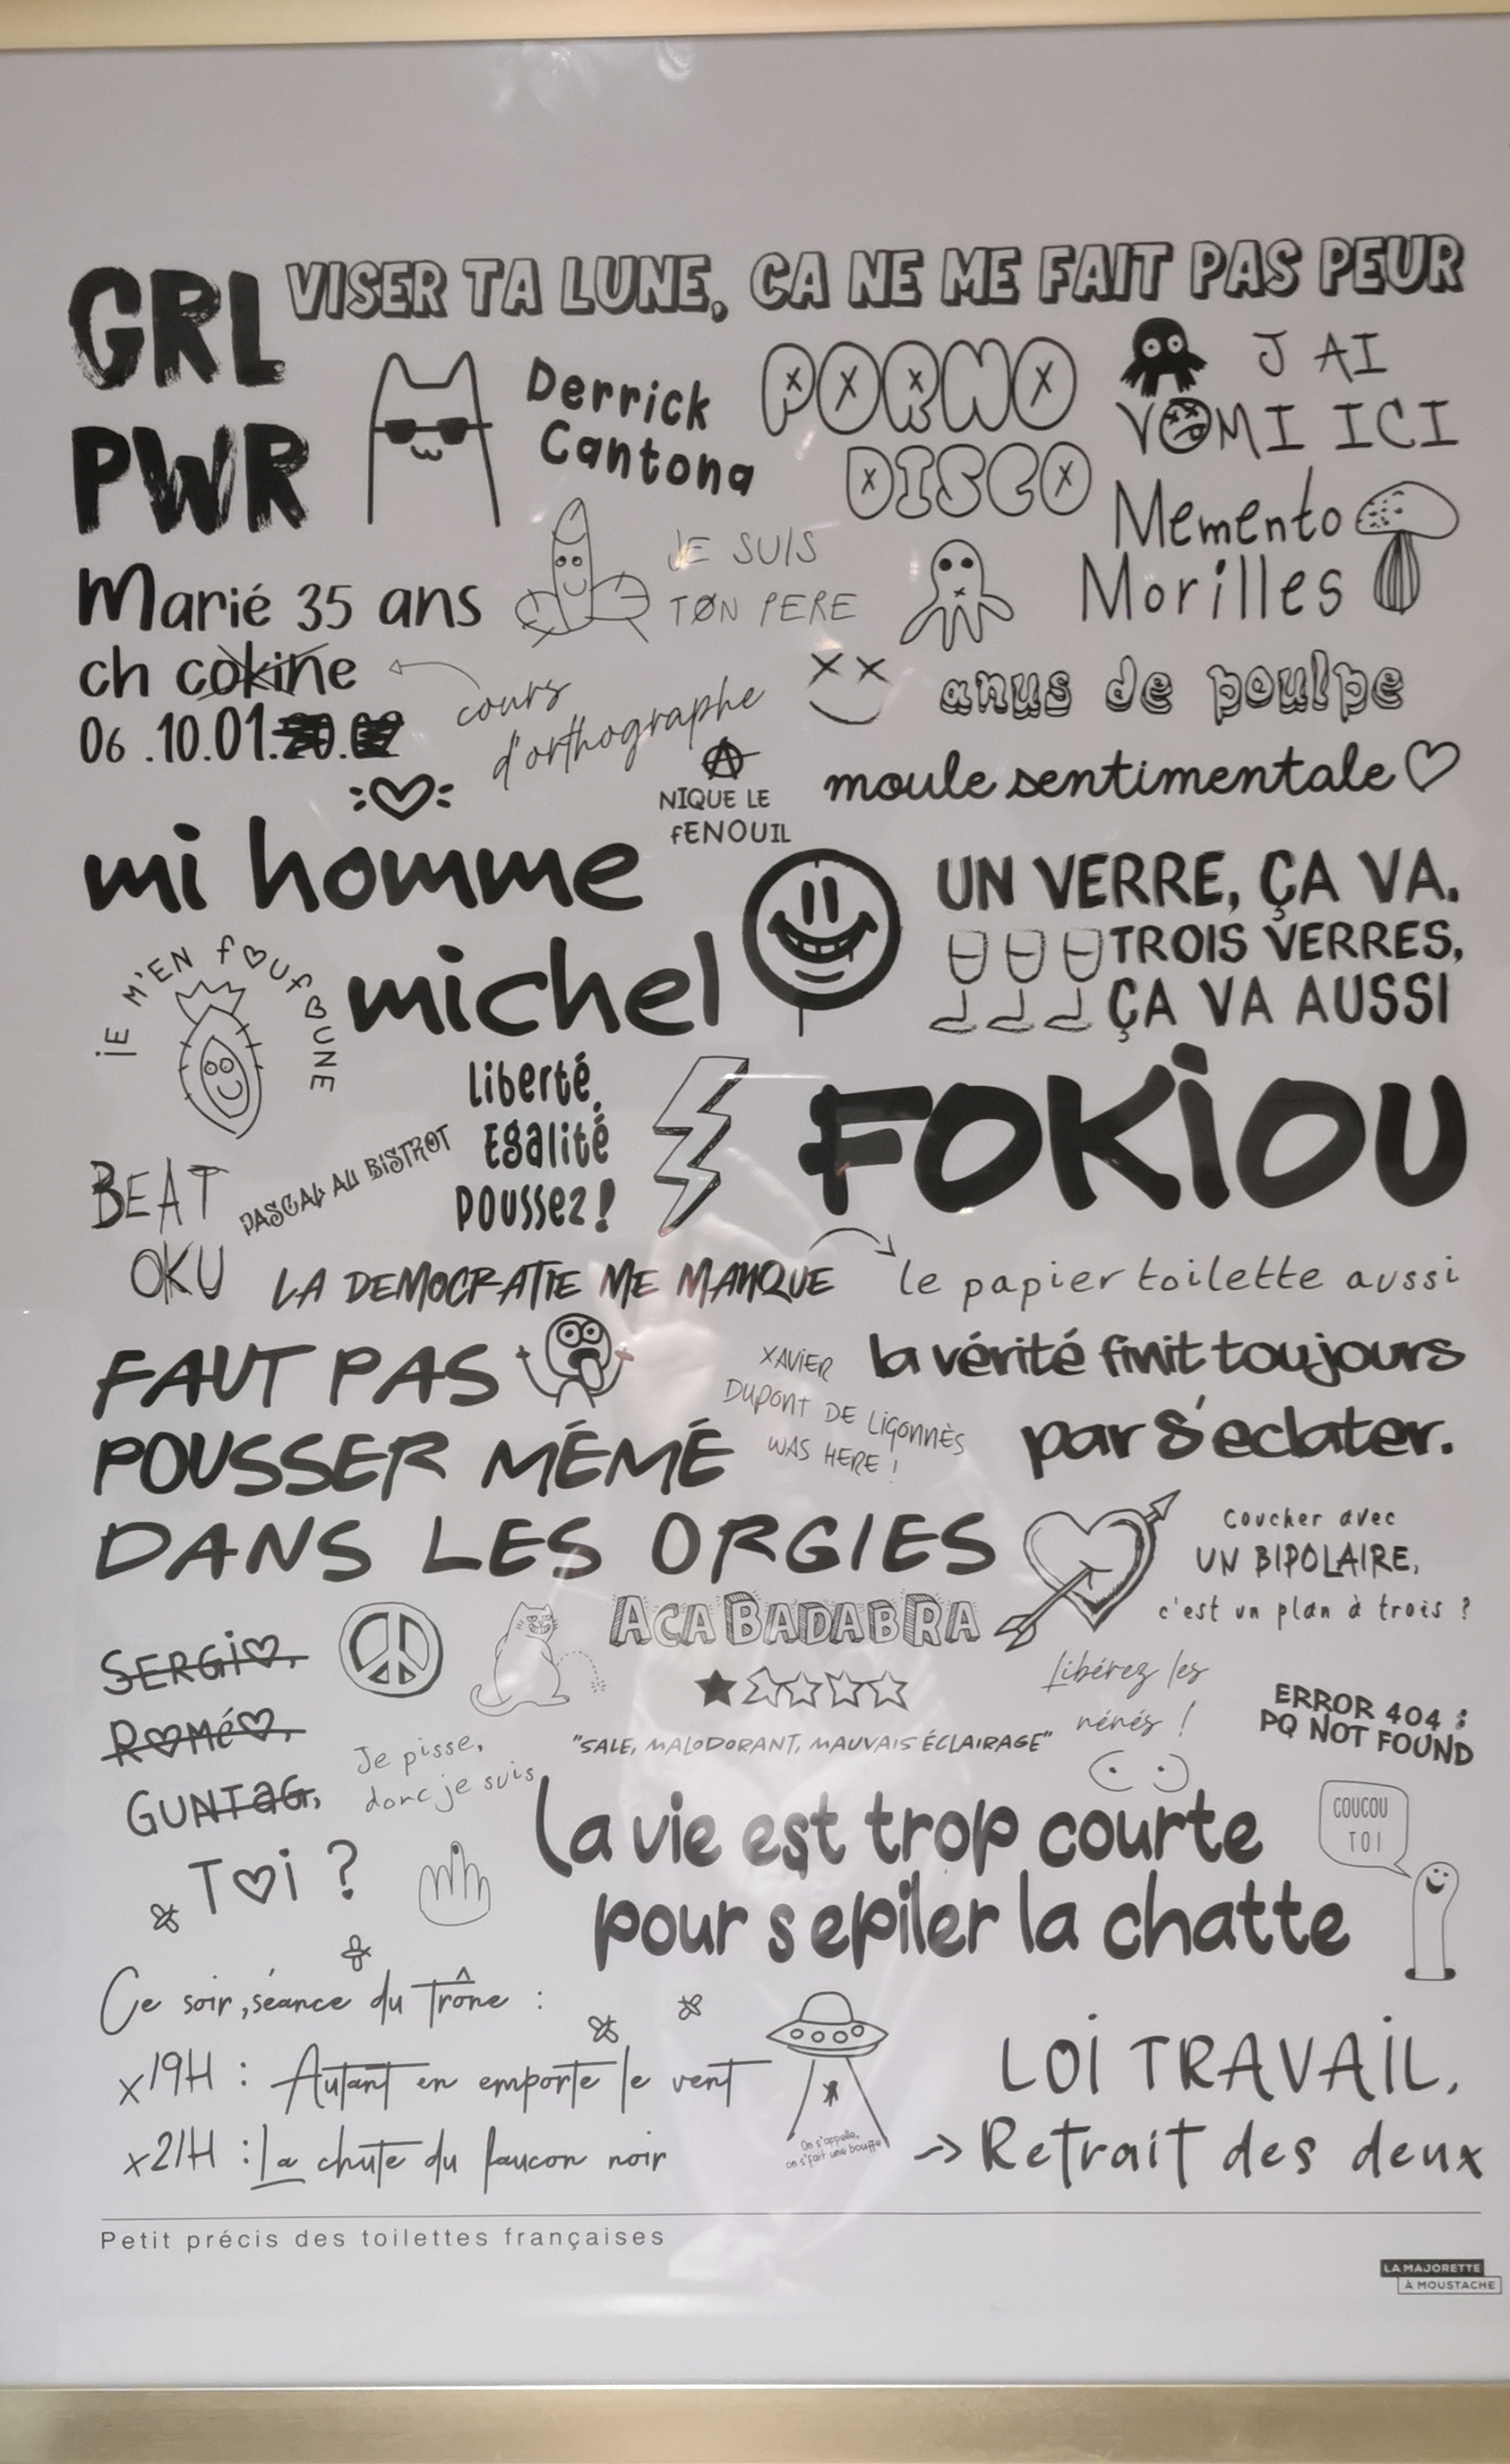 GRL
PWR
VISER TA LUNE, CA NE ME FAIT PAS PEUR
Derrick
Cantona
PORNO
DISCO
J AI
VOMI ICI
Memento
Morilles
JE SUIS
TØN PERE
Marié 35 ans
ch cokine
06.10.01.
cours
d'orthographe
anus de poulpe
NIQUE LE
fENOUIL
moule sentimentale
mi homme
michel
UN VERRE, ÇA VA.
TROIS VERRES,
ÇA VA AUSSI
jE M'EN fOUfOUNE
Liberté,
Egalité
Poussez!
FOKIOU
BEAT
OKU
PASCAL AU BiSTROT
LA DEMOCRATIE ME MANQUE
le papier toilette aussi
FAUT PAS
POUSSER MÉMÉ
DANS LES ORGIES
XAViER
DUPONT DE LiGONNÈS
WAS HERE !
la vérité finit toujours
par s'eclater.
Coucher avec
UN BIPOLAIRE,
c'est un plan à trois ?
ACABADABRA
"SALE, MALODORANT, MAUVAIS ÉCLAIRAGE"
Libérez les
nénés !
ERROR 404 :
PQ NOT FOUND
SERGiO,
ROMéO,
GUNTaG,
Toi ?
Je pisse,
donc je suis
La vie est trop courte
pour s epiler la chatte
COUCOU
TOI
Ce soir, séance du Trône :
x19H : Autant en emporte le vent
x21H : La chute du faucon noir
On s'appelle,
on s'fait une bouffe
LOI TRAVAIL.
-> Retrait des deux
Petit précis des toilettes françaises
LA MAJORETTE
À MOUSTACHE